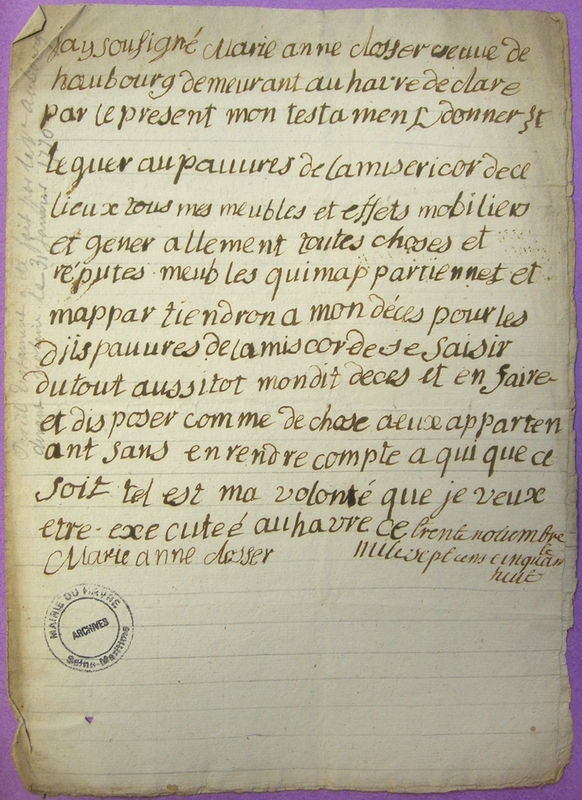 Jay sousigné Marie anne closser veuve de
haubourg demeurant au havre de clare
par le present mon testament donner et
leguer au pauures de la misericor dece
lieux tous mes meubles et effets mobiliers
et gener allement toutes choses et
réputes meubles qui map partiennet et
mappar tiendron a mon déces pour les
dits pauures de la miscorde se saisir
du tout aussitot mondit deces et en faire
et dis poser comme de chose a eux apparten
ant sans en rendre compte a qui que ce
soit tel est ma volonté que je veux
etre exe cuteé au havre ce trente novembre
mille sept cens cinquan te
huit
Marie anne closser
MAIRIE DU HAVRE
ARCHIVES
Seine-Maritime